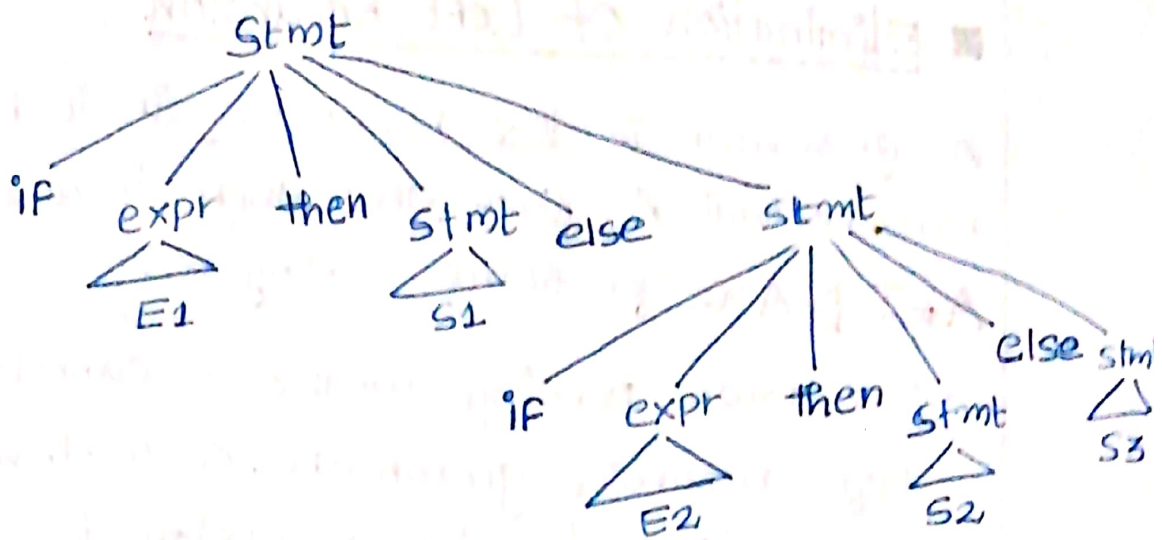 Stmt
if expr then stmt else stmt
E1 S1
if expr then stmt else stm
E2 S2 S3